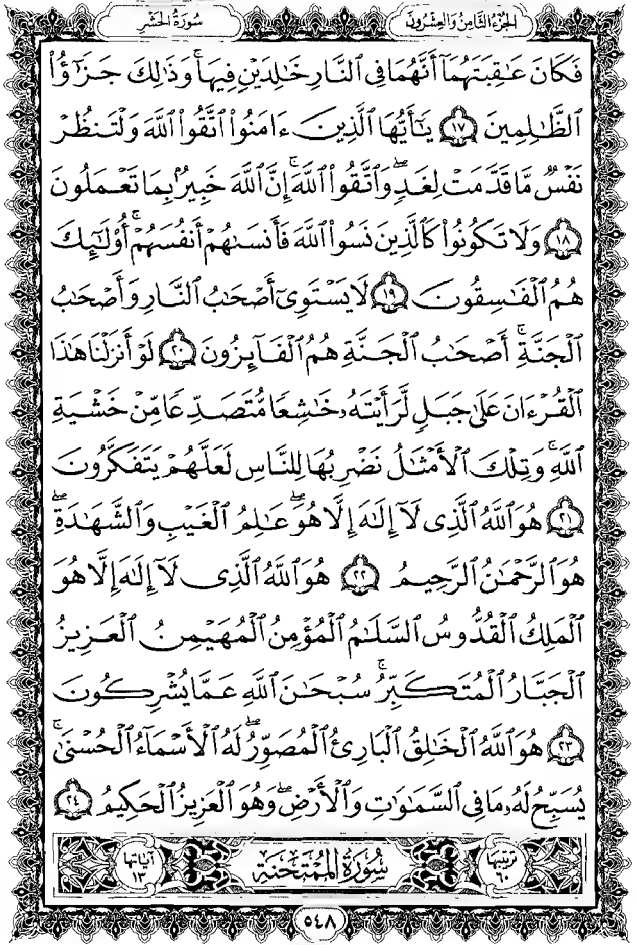 سُورَةُ الحَشْرِ
الجُزْءُ الثَّامِنُ وَالعِشْرُونَ
فَكَانَ عَٰقِبَتَهُمَآ أَنَّهُمَا فِى ٱلنَّارِ خَٰلِدَيْنِ فِيهَاۚ وَذَٰلِكَ جَزَٰٓؤُا۟
ٱلظَّٰلِمِينَ ١٧ يَٰٓأَيُّهَا ٱلَّذِينَ ءَامَنُوا۟ ٱتَّقُوا۟ ٱللَّهَ وَلْتَنظُرْ
نَفْسٌ مَّا قَدَّمَتْ لِغَدٍۖ وَٱتَّقُوا۟ ٱللَّهَۚ إِنَّ ٱللَّهَ خَبِيرٌۢ بِمَا تَعْمَلُونَ
١٨ وَلَا تَكُونُوا۟ كَٱلَّذِينَ نَسُوا۟ ٱللَّهَ فَأَنسَىٰهُمْ أَنفُسَهُمْۚ أُو۟لَٰٓئِكَ
هُمُ ٱلْفَٰسِقُونَ ١٩ لَا يَسْتَوِىٓ أَصْحَٰبُ ٱلنَّارِ وَأَصْحَٰبُ
ٱلْجَنَّةِۚ أَصْحَٰبُ ٱلْجَنَّةِ هُمُ ٱلْفَآئِزُونَ ٢٠ لَوْ أَنزَلْنَا هَٰذَا
ٱلْقُرْءَانَ عَلَىٰ جَبَلٍ لَّرَأَيْتَهُۥ خَٰشِعًا مُّتَصَدِّعًا مِّنْ خَشْيَةِ
ٱللَّهِۚ وَتِلْكَ ٱلْأَمْثَٰلُ نَضْرِبُهَا لِلنَّاسِ لَعَلَّهُمْ يَتَفَكَّرُونَ
٢١ هُوَ ٱللَّهُ ٱلَّذِى لَآ إِلَٰهَ إِلَّا هُوَۖ عَٰلِمُ ٱلْغَيْبِ وَٱلشَّهَٰدَةِۖ
هُوَ ٱلرَّحْمَٰنُ ٱلرَّحِيمُ ٢٢ هُوَ ٱللَّهُ ٱلَّذِى لَآ إِلَٰهَ إِلَّا هُوَ
ٱلْمَلِكُ ٱلْقُدُّوسُ ٱلسَّلَٰمُ ٱلْمُؤْمِنُ ٱلْمُهَيْمِنُ ٱلْعَزِيزُ
ٱلْجَبَّارُ ٱلْمُتَكَبِّرُۚ سُبْحَٰنَ ٱللَّهِ عَمَّا يُشْرِكُونَ
٢٣ هُوَ ٱللَّهُ ٱلْخَٰلِقُ ٱلْبَارِئُ ٱلْمُصَوِّرُۖ لَهُ ٱلْأَسْمَآءُ ٱلْحُسْنَىٰۚ
يُسَبِّحُ لَهُۥ مَا فِى ٱلسَّمَٰوَٰتِ وَٱلْأَرْضِۖ وَهُوَ ٱلْعَزِيزُ ٱلْحَكِيمُ ٢٤
ترتيبها ٦٠
سُورَةُ المُمْتَحنَة
آياتها ١٣
٥٤٨